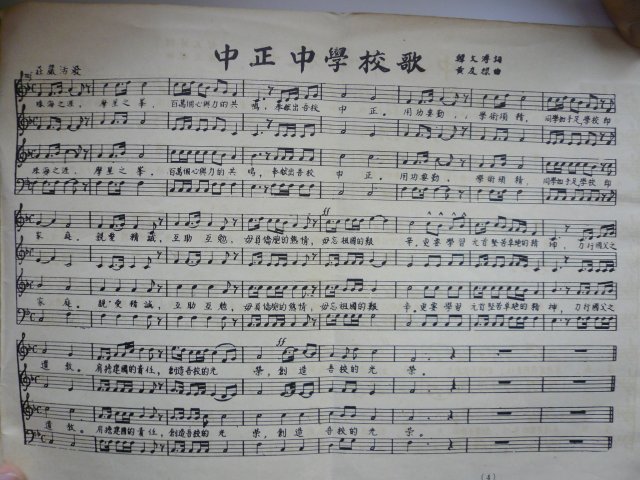 中正中學校歌
莊嚴 可愛
韓文溥 詞
黃友棣 曲
珠海之涯，摩星之峯，百萬個心與力的共鳴，奉獻出吾校中正。用功專勤，學術須精，同學如手足，學校即
珠海之涯，摩星之峯，百萬個心與力的共鳴，奉獻出吾校中正。用功專勤，學術須精，同學如手足，學校即
家庭。親愛精誠，互助互勉，毋負僑胞的熱情，毋忘祖國的艱辛，更要學習元首堅苦卓絕的精神，力行國父之
家庭。親愛精誠，互助互勉，毋負僑胞的熱情，毋忘祖國的艱辛，更要學習元首堅苦卓絕的精神，力行國父之
遺教。肩擔建國的責任，創造吾校的光榮，創造吾校的光榮。
遺教。肩擔建國的責任，創造吾校的光榮，創造吾校的光榮。